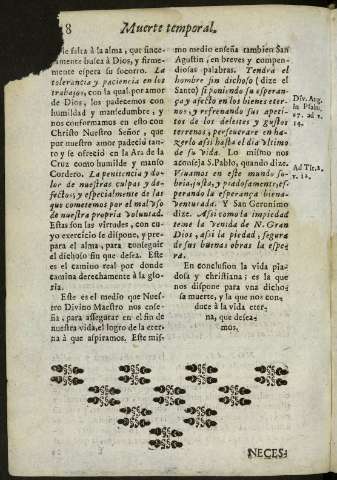 8 Muerte temporal.
le falta à la alma, que since-
ramente busca à Dios, y firme-
mente espera su socorro. La
tolerancia y paciencia en los
trabajos, con la qual por amor
de Dios, los padecemos con
humildad y mansedumbre, y
nos conformamos en esto con
Christo Nuestro Señor, que
por nuestro amor padeciò tan-
to y se ofreciò en la Ara de la
Cruz como humilde y manso
Cordero. La penitencia y do-
lor de nuestras culpas y de-
fectos, y especialmente de las
que cometemos por el mal uso
de nuestra propria voluntad.
Estas son las virtudes, con cu-
yo exercicio se dispone, y pre-
para el alma, para conseguir
el dichoso fin que desea. Este
es el camino real por donde
camina derechamente à la glo-
ria.
Este es el medio que Nues-
tro Divino Maestro nos ense-
ña, para assegurar en el fin de
nuestra vida, el logro de la eter-
na à que aspiramos. Este mis-
mo medio enseña tambien San
Agustin, en breves y compen-
diosas palabras. Tendra el
hombre fin dichoso (dize el
Santo) si poniendo su esperan-
ça y afecto en los bienes eter-
nos, y refrenando sus apeti-
tos de los deleites y gustos
terrenos, perseverare en ha-
zerlo assi hasta el dia vltimo
de su vida. Lo mismo nos
aconseja S. Pablo, quando dize.
Vivamos en este mundo so-
bria, justa, y piadosamente, es-
perando la esperança biena-
venturada. Y San Geronimo
dize. Assi como la impiedad
teme la venida de N. Gran
Dios, assi la piedad, segura
de sus buenas obras la espe-
ra.
En conclusion la vida pia-
dosa y christiana; es la que
nos dispone para vna dicho-
sa muerte, y la que nos con-
duce à la vida eter-
na, que desea-
mos.
Div. Aug.
in Psalm.
Ad Tit. 2.
v. 12.
NECES-